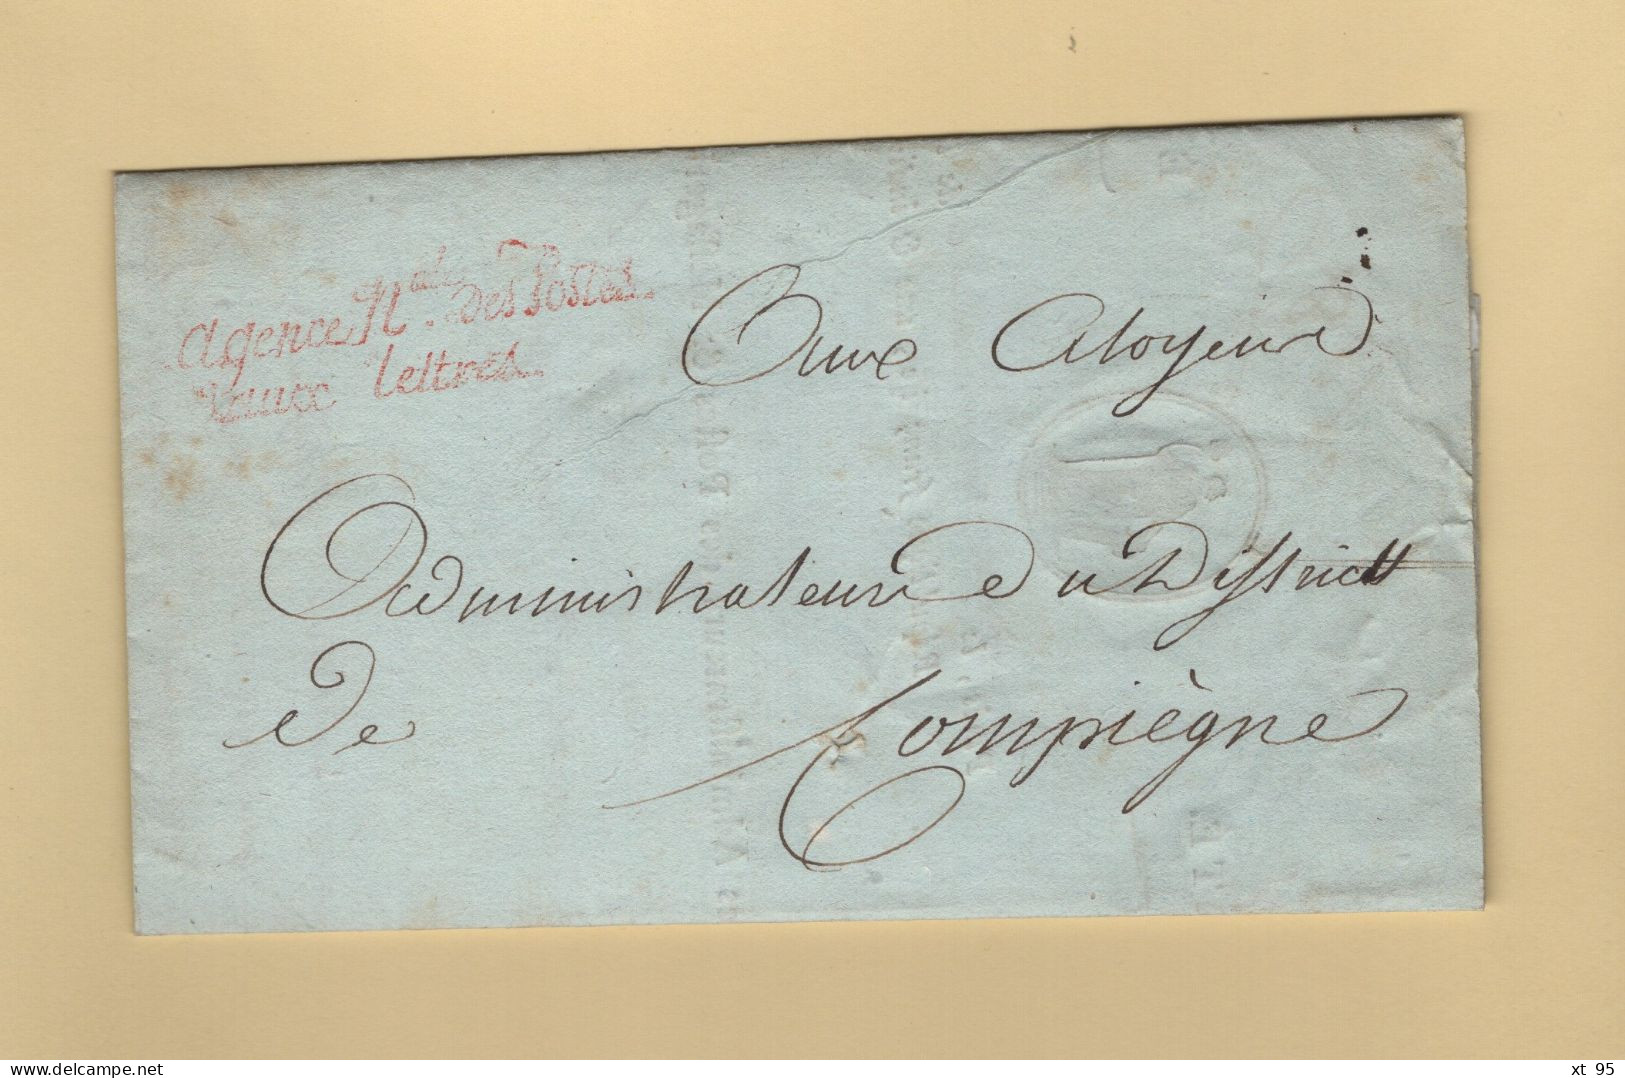 Agence N.ale Des Postes
aux Lettres
Aux Citoyens
Administrateurs du District
de Compiègne
© delcampe.net
xt 95